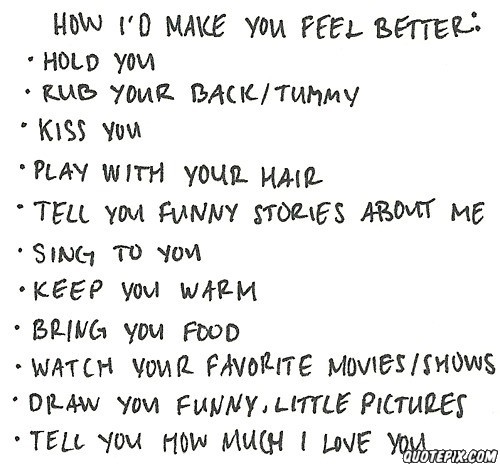 HOW I'D MAKE YOU FEEL BETTER:
• HOLD YOU
• RUB YOUR BACK/TUMMY
• KISS YOU
• PLAY WITH YOUR HAIR
• TELL YOU FUNNY STORIES ABOUT ME
• SING TO YOU
• KEEP YOU WARM
• BRING YOU FOOD
• WATCH YOUR FAVORITE MOVIES/SHOWS
• DRAW YOU FUNNY, LITTLE PICTURES
• TELL YOU HOW MUCH I LOVE YOU
QUOTEPIX.COM